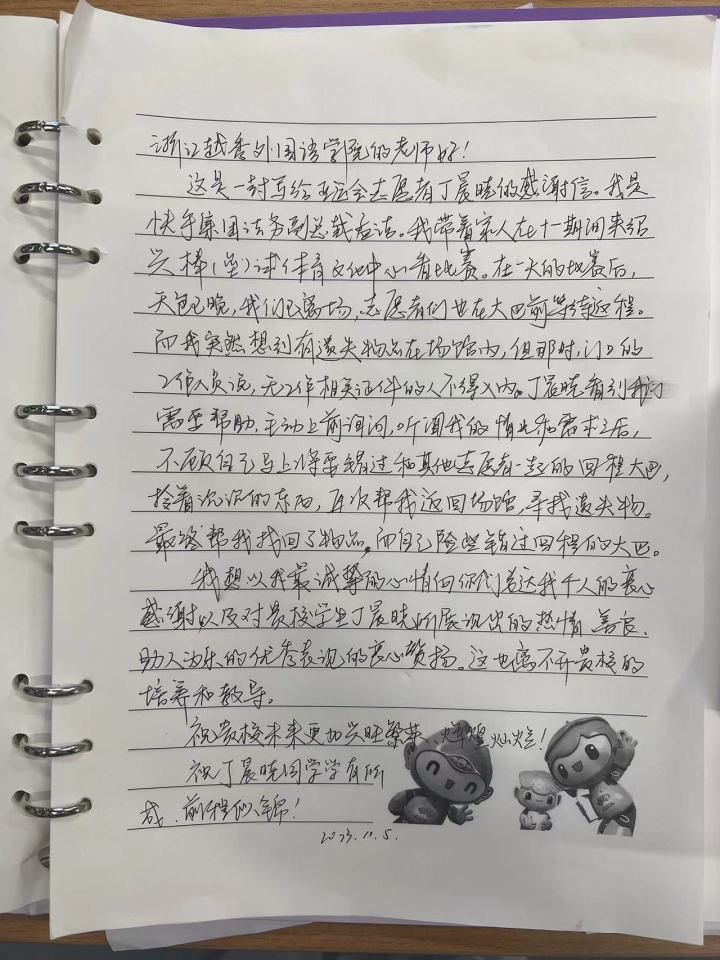 浙江越秀外国语学院的老师好！
这是一封写给亚运会志愿者丁晨晓的感谢信。我是
快手集团法务副总裁。我带着家人在十一期间来绍
兴棒(垒)球体育文化中心看比赛。在一天的比赛后，
天色已晚，我们已离场，志愿者们也在大巴前等待返程。
而我突然想到有遗失物品在场馆内，但那时，门口的
工作人员说，无工作相关证件的人不得入内。丁晨晓看到我们
需要帮助，主动上前询问，听闻我的情况和需求之后，
不顾自己马上将要错过和其他志愿者一起的回程大巴，
拎着沉沉的东西，再次帮我返回场馆，寻找遗失物。
最终帮我找回了物品，而自己险些错过回程的大巴。
我想以我最诚挚的心情向你们表达我个人的衷心
感谢以及对贵校学生丁晨晓所展现出的热情、善良、
助人为乐的优秀表现的衷心赞扬。这也离不开贵校的
培养和教导。
祝贵校未来更加兴旺繁荣、辉煌灿烂！
祝丁晨晓同学学有所
成、前程似锦！
2023.10.5.